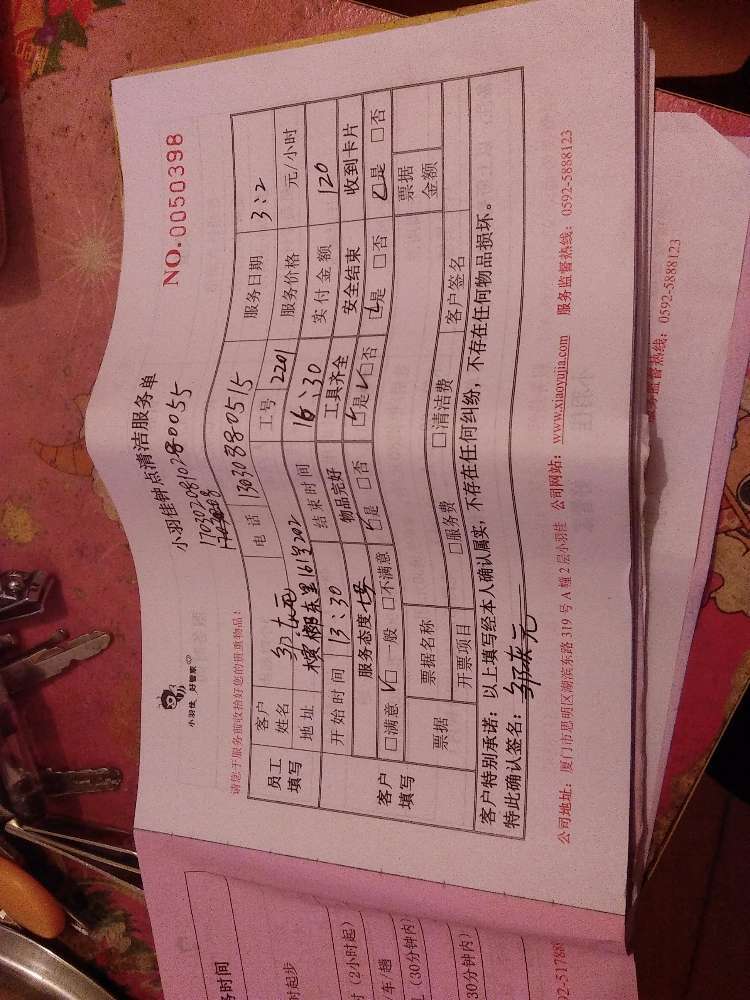 小羽佳 好管家
小羽佳钟点清洁服务单
NO.0050398
1703020810280055
请您于服务前收拾好您的贵重物品!
员工填写
客户姓名
电话 13030380515
服务日期 3:2
地址 槟榔东里161号202
工号 2201
服务价格 元/小时
开始时间 13:30
结束时间 16:30
实付金额 120
客户填写
服务态度
物品完好
工具齐全
安全结束
收到卡片
□满意 □一般 □不满意
□是 □否
□是 □否
□是 □否
□是 □否
票据
票据名称
票据金额
开票项目
□服务费 □清洁费
客户签名
客户特别承诺:以上填写经本人确认属实,不存在任何纠纷,不存在任何物品损坏。
特此确认签名:
公司地址:厦门市思明区湖滨东路 319 号 A 幢 2 层小羽佳 公司网站:www.xiaoyujia.com 服务监督热线:0592-5888123
服务监督热线:0592-5888123
务时间
时起步
时(2小时起)
车/趟
(30分钟内)
30分钟内)